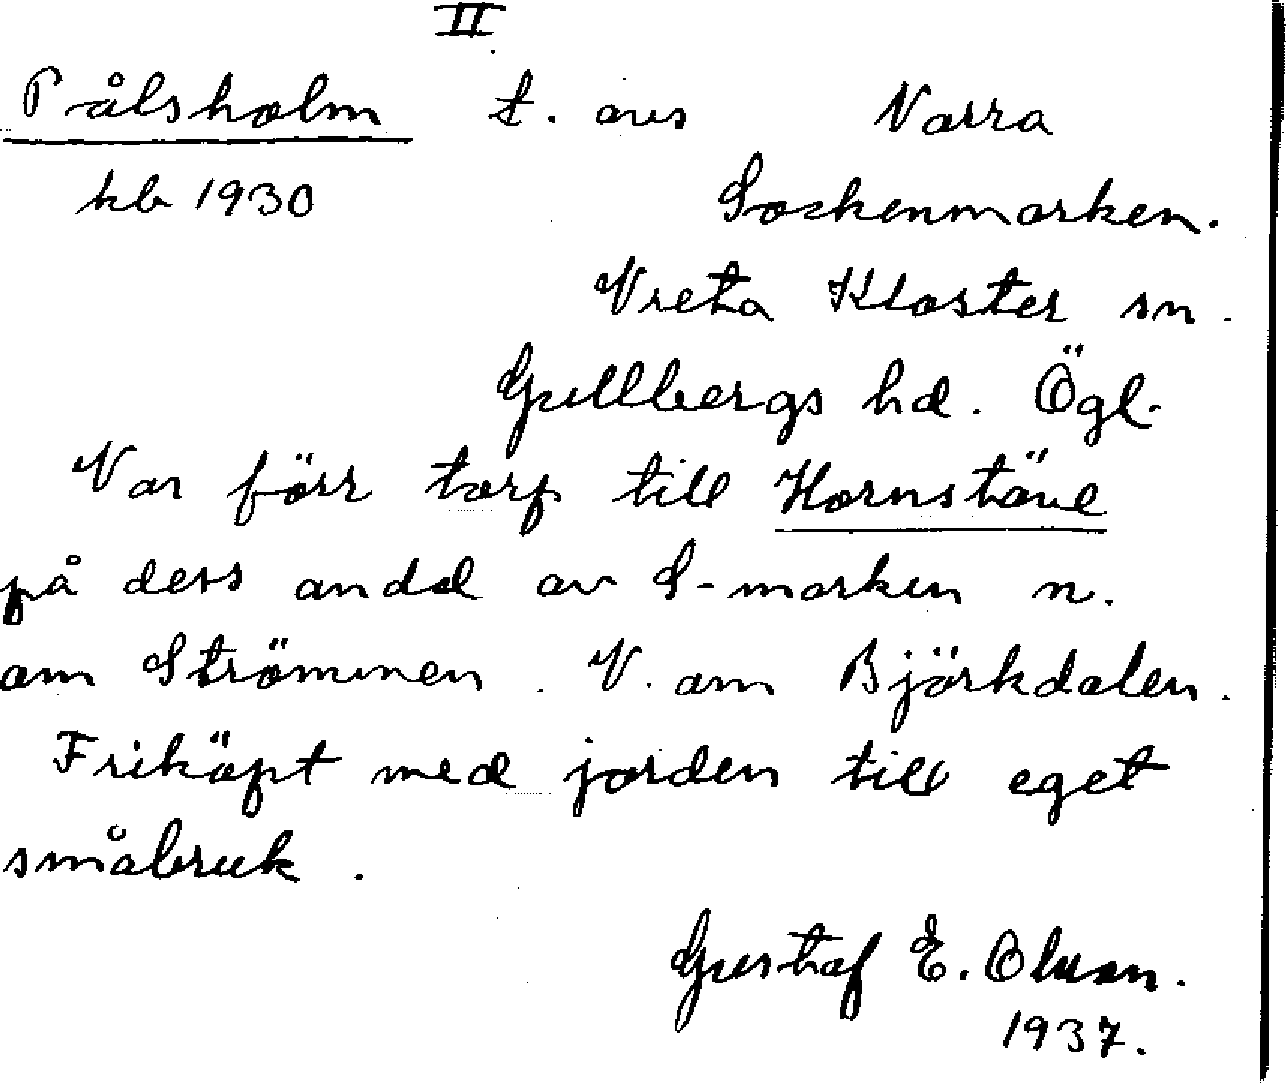 II
Pålsholm t. avs Norra
kb 1930 Sockenmarken.
Vreta Kloster sn.
Gullbergs hd. Ögl.
Var förr torp till Kornstäve
på dess andel av S-marken n.
om Strömmen. V. om Björkdalen.
Friköpt med jorden till eget
småbruk.
Gustaf E. Olsson.
1937.